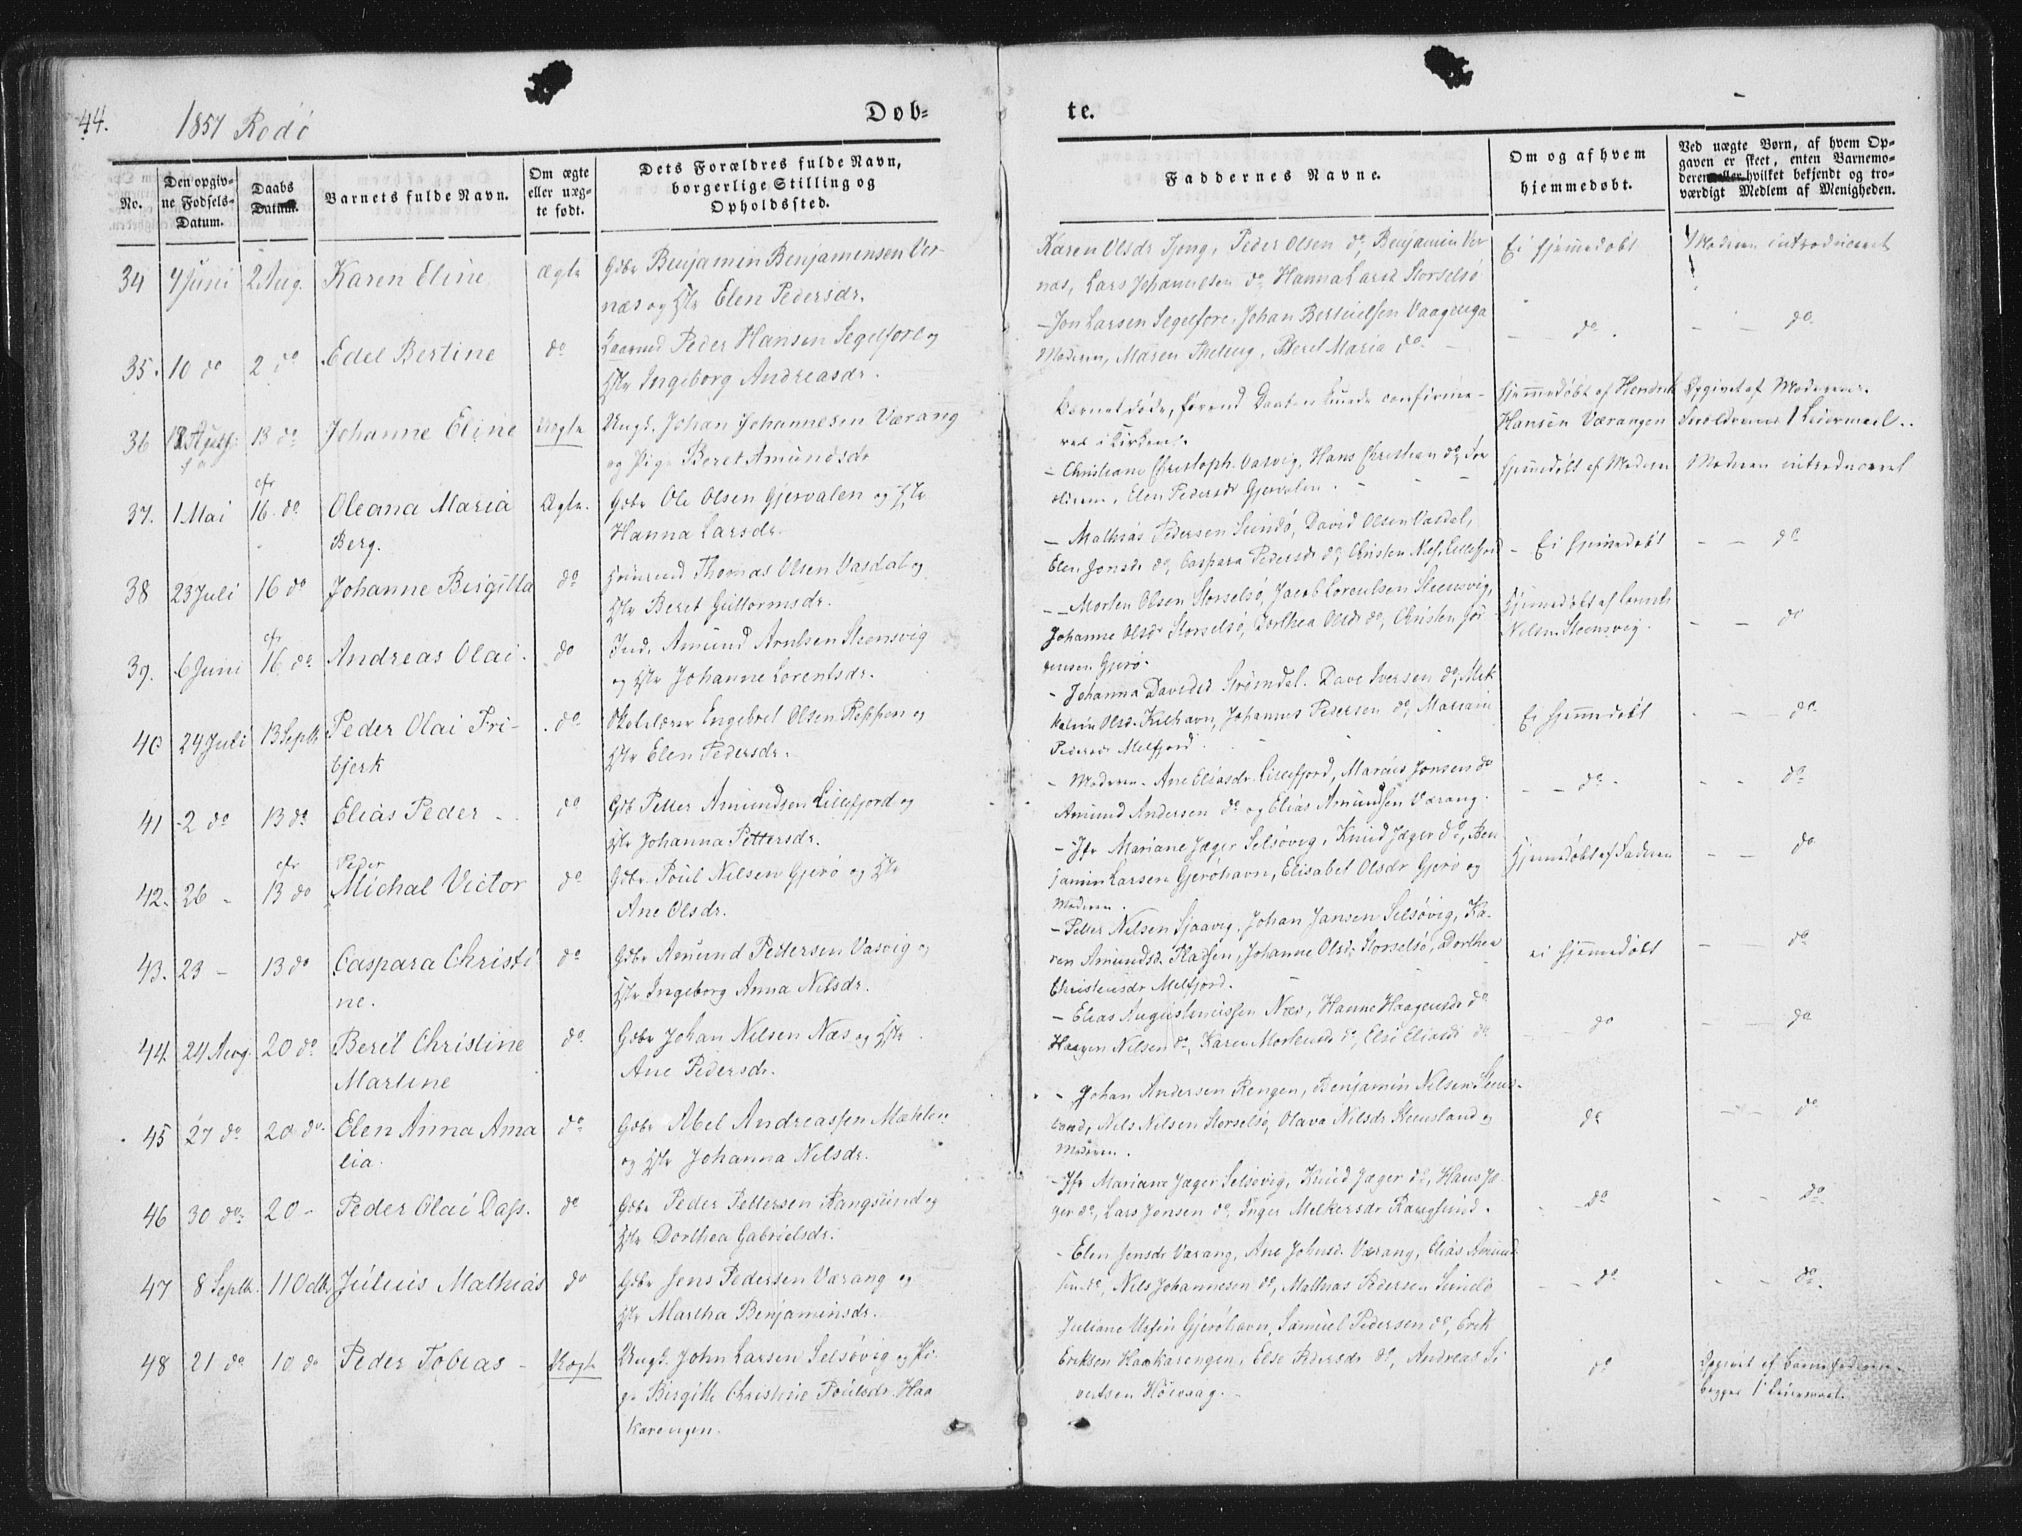 44.
1857 Rødø
Døb-
te.
No.
Den opgiv-
ne Fødsels-
Datum.
Daabs
Datum.
Barnets fulde Navn.
Om ægte
eller uæg-
te født.
Dets Forældres fulde Navn,
borgerlige Stilling og
Opholdssted.
Faddernes Navne.
Om og af hvem
hjemmedøbt.
Ved uægte Børn, af hvem Op-
gaven er skeet, enten Barnemo-
deren eller hvilket bekjendt og tro-
værdigt Medlem af Menigheden.
34 4 Juni 2 Aug. Karen Eline Ægte Gdbr Benjamin Benjaminsen Ver-
næs og Hstr Elen Pedersdr.
Karen Olsdr Tjong, Peder Olsen do, Benjamin Ver
næs, Lars Johannesen do, Hanna Larsd Storselsø
Ei hjemmedøbt
Moderen introduceret
35. 10 do 2 do Edel Bertine do Peder Hansen Segelfore og
Hstr Ingeborg Andreasdr.
- Jon Larsen Segelfore, Johan Vaagenga
Moderen, Maren, Beret Maria do
do
do
36 13 do Johanne Eline Uægte Ungk. Johan Johannesen Værang
og Pige Beret Amundsdr
Barnet døde, førend Daaben kunde confirme-
res i Kirken.
Hjemmedøbt af Hendrik
Hansen Værangen
Opgivet af Moderen.
Forældrenes 1 Leiermaal.
37. 1 Mai cfr 16 do Oleana Maria
Berg.
Ægte. Gdbr Ole Olsen Gjervalen og Hstr
Hanna Larsdr.
- Christiane Christoph. Vasvig, Hans Christian do, For
ældrene, Elen Pedersdr Gjervalen.
Hjemmedøbt af Moderen
Moderen introduceret
38 23 Juli 16 do Johanne Birgitta do Thomas Olsen Vasdal og
Hstr Beret Guttormsdr.
- Mathias Pedersen Sundø, David Olsen Vasdal,
Elen Jonsdr do, Caspara Pedersdr do, Christen Lillefjord
- Ei hjemmedøbt
do
39. 6 Juni cfr 16 do Andreas Olai. do Ind. Amund Arntsen Steensvig
og Hstr Johanne Lorentsdr.
- Morten Olsen Storselsø, Jacob Lorentsen Steensvig,
Johanne Olsdr Storselsø, Dorthea Olsdr do, Christen Jør-
gensen Gjerø.
Hjemmedøbt af
Nilsen Steensvig.
do
40 24 Juli 13 Septbr Peder Olai Fri-
bjerk
do Skolelærer Engebret Olsen Reppen og
Hstr Elen Pedersdr.
- Johanna Davidsd Strømdal. Dave Iversen do, Mek
Olsd. Kilhavn, Johannes Pedersen do, Mariane
Pedersdr Melfjord.
Ei hjemmedøbt
do
41 2 do 13 do Elias Peder do Gdbr Petter Amundsen Lillefjord og
Hstr Johanna Pettersdr.
- Moderen. Ane Eliasdr. Lillefjord, Marcus Jonsen do
Amund Andersen do og Elias Amundsen Værang.
do
do
42. 26 - cfr 13 do Peder
Michal Victor do Gdbr. Poul Nilsen Gjerø og Hstr
Ane Olsdr.
- Jfr Mariane Jæger Selsøvig, Knud Jæger do, Ben
jamin Larsen Gjerøhavn, Elisabet Olsdr Gjerø og
Moderen.
Hjemmedøbt af Faderen
do
43. 23 - 13 do Caspara Christi
ne.
do Gdbr Amund Pedersen Vasvig og
Hstr Ingeborg Anna Nilsdr.
- Petter Nilsen Sjaavig, Johan Jansen Selsøvig, Ka-
ren Amundsd. Johanne Olsdr Storselsø, Dorthea
Christensdr Melfjord.
ei hjemmedøbt
do
44. 24 Aug. 20 do Beret Christine
Martine
do Gdbr Johan Nilsen Næs og Hstr
Ane Pedersdr.
- Elias Augustinussen Næs, Hanne Haagensdr do
Haagen Nilsen do, Karen do, Else Eliasdr do
do
do
45 27 do 20 do. Elen Anna Ama
lia.
do Gdbr Abel Andreassen Mæhlen
og Hstr Johanna Nilsdr.
- Johan Andersen Rengen, Benjamin Nilsen Steens-
land, Nils Nilsen Storselsø, Olava Nilsdr Steensland og
Moderen.
do
do
46 30 do 20 - Peder Olai Dass. do Gdbr Peder Pettersen Rangsund og
Hstr Dorthea Gabrielsdr.
- Jfr Mariane Jæger Selsøvig, Knud Jæger do, Hans Jæ-
ger do, Lars Jonsen do, Inger Melkersdr Rangsund.
do
do
47 8 Septbr. 11 Octbr Julius Mathias do Gdbr Jens Pedersen Værang og
Hstr Martha Benjaminsdr.
- Elen Jensdr Værang, Ane Johnsd. Værang, Elias Amund
sen do, Nils Johannesen do, Mathias Pedersen Sundø
do
do.
48 21 do 10 do Peder Tobias - Uægte Ungk. John Larsen Selsøvig og Pi-
ge Birgitte Christine Poulsdr. Haa
karengen.
Juliane Gjerøhavn, Samuel Pedersen do, Erik
Eriksen Haakarengen, Else Pedersdr do, Andreas Si
vertsen
do
Opgivet af Barnefaderen.
begges 1 Leiermaal.